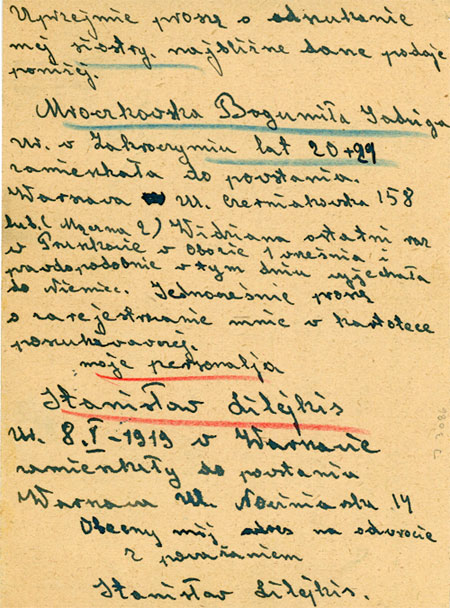 Uprzejmie proszę o odszukanie
mej siostry. najbliższe dane podaję
poniżej.
Mroczkowska Bogumiła Jadwiga
ur. w Zakroczymiu lat 20+29
zamieszkała do powstania.
Warszawa ul. Czerniakowska 158
lub. (Mączna 2) Widziana ostatni raz
w Pruszkowie w obozie 1 września i
prawdopodobnie w tym dniu wyjechała
do Niemiec. Jednocześnie proszę
o zarejestrowanie mnie w kartotece
poszukiwawczej.
moje personalja
Stanisław Lilejkis
ur. 8.I-1919 w Warszawie
zamieszkały do powstania
Warszawa ul. 14
Obecny mój adres na odwrocie
z poważaniem
Stanisław Lilejkis.
J 3086